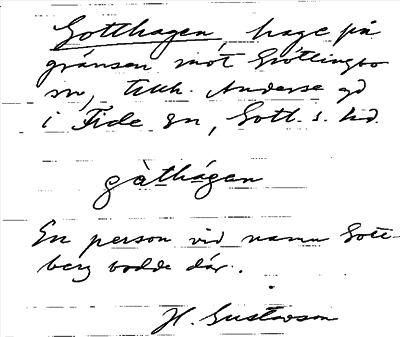 Gotthagen, hage på
gränsen mot Grötlingbo
sn, tillh. Anderse gd
i Fide sn, Gotl. s. hd.
gàthágen
En person vid namn Gott-
berg bodde där.
H. Gustavson